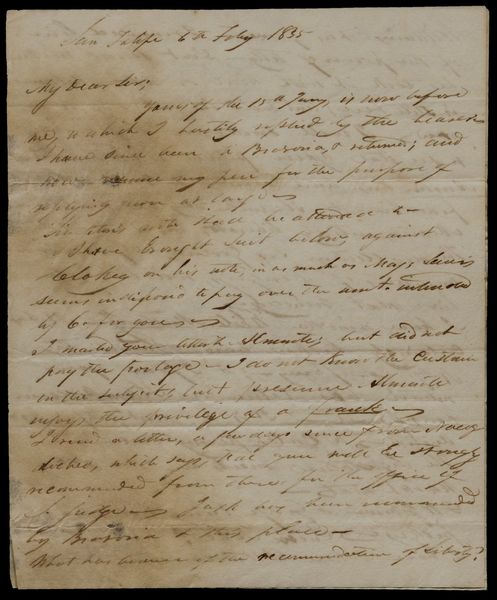 San Felipe 6th Feby 1835
My Dear Sir;
Yours of the 13th Jany is now before
me, to which I hastily replied by the bearer
I have since been to Brazoria, & returned; and
now resume my pen for the purpose of
replying more at large
shall be attended to
I have brought suit below, against
on his note, in as much as Majr Lewis
seems indisposed to pay over the amt.
by Co for you
I mailed your letter to Almonte, but did not
pay the postage — I do not know the custom
on the subject, but presume Almonte
enjoys the privilege of a frank
I recd a letter, a few days since from Nacog
doches, which says that you will be strongly
recommended from there for the office of
Judge — Jack has been recommended
by Brazoria & this place
What has become of the recommendation of Liberty?